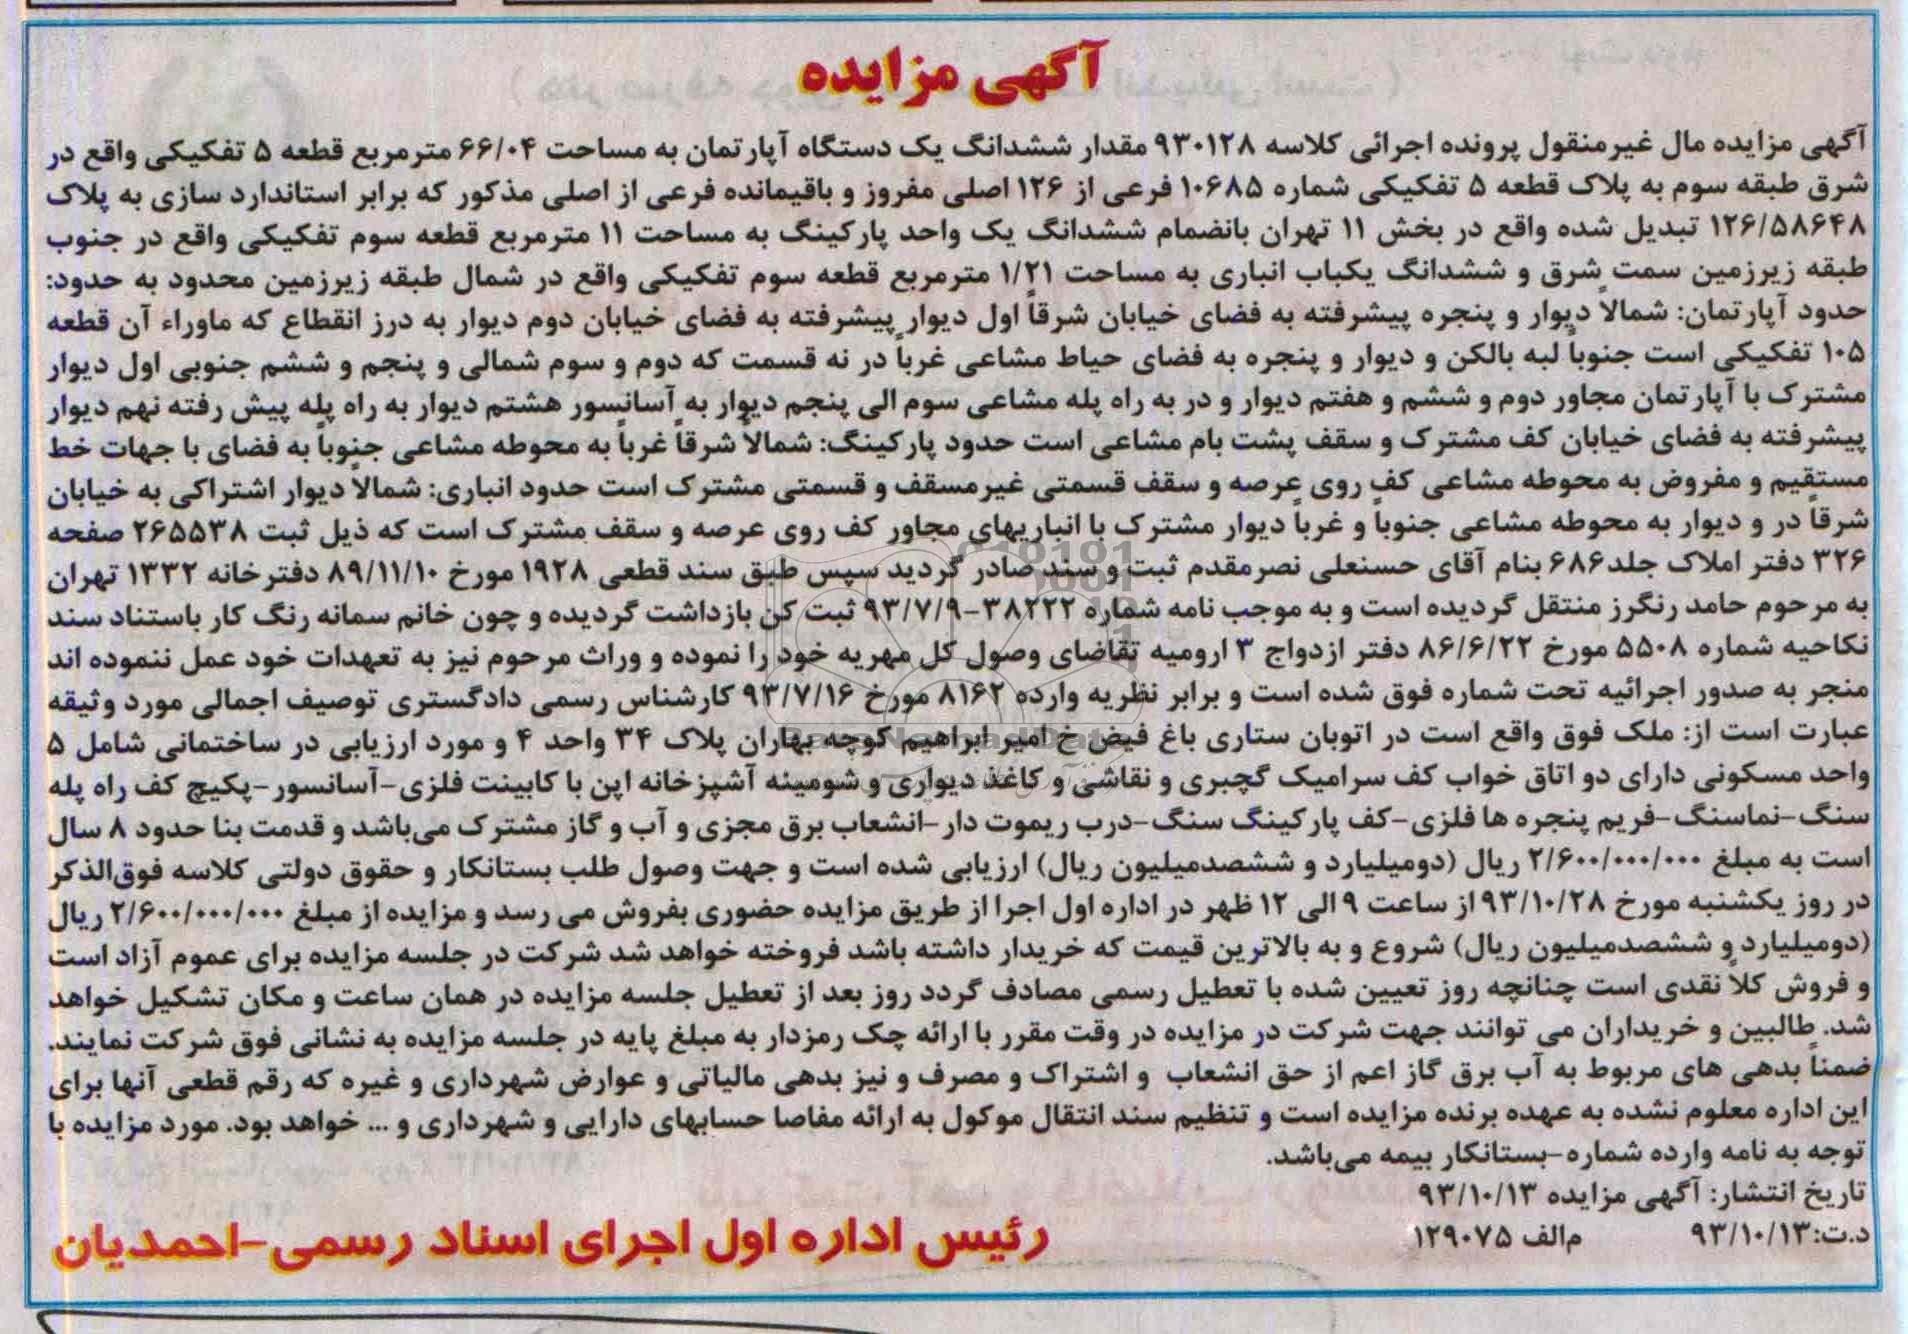 آگهی مزایده
آگهی مزایده مال غیرمنقول پرونده اجرائی کلاسه ۹۳۰۱۲۸ مقدار ششدانگ یک دستگاه آپارتمان به مساحت ۶۶/۰۴ مترمربع قطعه ۵ تفکیکی واقع در
شرق طبقه سوم به پلاک قطعه ۵ تفکیکی شماره ۱۰۶۸۵ فرعی از ۱۲۶ اصلی مفروز و باقیمانده فرعی از اصلی مذکور که برابر استاندارد سازی به پلاک
۱۲۶/۵۸۶۴۸ تبدیل شده واقع در بخش ۱۱ تهران بانضمام ششدانگ یک واحد پارکینگ به مساحت ۱۱ مترمربع قطعه سوم تفکیکی واقع در جنوب
طبقه زیرزمین سمت شرق و ششدانگ یکباب انباری به مساحت ۱/۲۱ مترمربع قطعه سوم تفکیکی واقع در شمال طبقه زیرزمین محدود به حدود:
حدود آپارتمان: شمالاً دیوار و پنجره پیشرفته به فضای خیابان شرقاً اول دیوار پیشرفته به فضای خیابان دوم دیوار به درز انقطاع که ماوراء آن قطعه
۱۰۵ تفکیکی است جنوباً لبه بالکن و دیوار و پنجره به فضای حیاط مشاعی غرباً در نه قسمت که دوم و سوم شمالی و پنجم و ششم جنوبی اول دیوار
مشترک با آپارتمان مجاور دوم و ششم و هفتم دیوار و در به راه پله مشاعی سوم الی پنجم دیوار به آسانسور هشتم دیوار به راه پله پیش رفته نهم دیوار
پیشرفته به فضای خیابان کف مشترک و سقف پشت بام مشاعی است حدود پارکینگ: شمالاً شرقاً غرباً به محوطه مشاعی جنوباً به فضای با جهات خط
مستقیم و مفروض به محوطه مشاعی کف روی عرصه و سقف قسمتی غیرمسقف و قسمتی مشترک است حدود انباری: شمالاً دیوار اشتراکی به خیابان
شرقاً در و دیوار به محوطه مشاعی جنوباً و غرباً دیوار مشترک با انباریهای مجاور کف روی عرصه و سقف مشترک است که ذیل ثبت ۲۶۵۵۳۸ صفحه
۳۲۶ دفتر املاک جلد ۶۸۶ بنام آقای حسنعلی نصرمقدم ثبت و سند صادر گردید سپس طبق سند قطعی ۱۹۲۸ مورخ ۸۹/۱۱/۱۰ دفترخانه ۱۳۳۲ تهران
به مرحوم حامد رنگرز منتقل گردیده است و به موجب نامه شماره ۳۸۲۲۲-۹۳/۷/۹ ثبت کن بازداشت گردیده و چون خانم سمانه رنگ کار باستناد سند
نکاحیه شماره ۵۵۰۸ مورخ ۸۶/۶/۲۲ دفتر ازدواج ۳ ارومیه تقاضای وصول کل مهریه خود را نموده و وراث مرحوم نیز به تعهدات خود عمل ننموده اند
منجر به صدور اجرائیه تحت شماره فوق شده است و برابر نظریه وارده ۸۱۶۲ مورخ ۹۳/۷/۱۶ کارشناس رسمی دادگستری توصیف اجمالی مورد وثیقه
عبارت است از: ملک فوق واقع است در اتوبان ستاری باغ فیض خ امیر ابراهیم کوچه بهاران پلاک ۳۴ واحد ۴ و مورد ارزیابی در ساختمانی شامل ۵
واحد مسکونی دارای دو اتاق خواب کف سرامیک گچبری و نقاشی و کاغذ دیواری و شومینه آشپزخانه اپن با کابینت فلزی-آسانسور-پکیچ کف راه پله
سنگ-نماسنگ-فریم پنجره ها فلزی-کف پارکینگ سنگ-درب ریموت دار-انشعاب برق مجزی و آب و گاز مشترک می‌باشد و قدمت بنا حدود ۸ سال
است به مبلغ ۲/۶۰۰/۰۰۰/۰۰۰ ریال (دومیلیارد و ششصدمیلیون ریال) ارزیابی شده است و جهت وصول طلب بستانکار و حقوق دولتی کلاسه فوق‌الذکر
در روز یکشنبه مورخ ۹۳/۱۰/۲۸ از ساعت ۹ الی ۱۲ ظهر در اداره اول اجرا از طریق مزایده حضوری بفروش می رسد و مزایده از مبلغ ۲/۶۰۰/۰۰۰/۰۰۰ ریال
(دومیلیارد و ششصدمیلیون ریال) شروع و به بالاترین قیمت که خریدار داشته باشد فروخته خواهد شد شرکت در جلسه مزایده برای عموم آزاد است
و فروش کلاً نقدی است چنانچه روز تعیین شده با تعطیل رسمی مصادف گردد روز بعد از تعطیل جلسه مزایده در همان ساعت و مکان تشکیل خواهد
شد. طالبین و خریداران می توانند جهت شرکت در مزایده در وقت مقرر با ارائه چک رمزدار به مبلغ پایه در جلسه مزایده به نشانی فوق شرکت نمایند.
ضمناً بدهی های مربوط به آب برق گاز اعم از حق انشعاب و اشتراک و مصرف و نیز بدهی مالیاتی و عوارض شهرداری و غیره که رقم قطعی آنها برای
این اداره معلوم نشده به عهده برنده مزایده است و تنظیم سند انتقال موکول به ارائه مفاصا حسابهای دارایی و شهرداری و ... خواهد بود. مورد مزایده با
توجه به نامه وارده شماره-بستانکار بیمه می‌باشد.
تاریخ انتشار: آگهی مزایده ۹۳/۱۰/۱۳
د.ت: ۹۳/۱۰/۱۳ م‌الف ۱۲۹۰۷۵
رئیس اداره اول اجرای اسناد رسمی-احمدیان